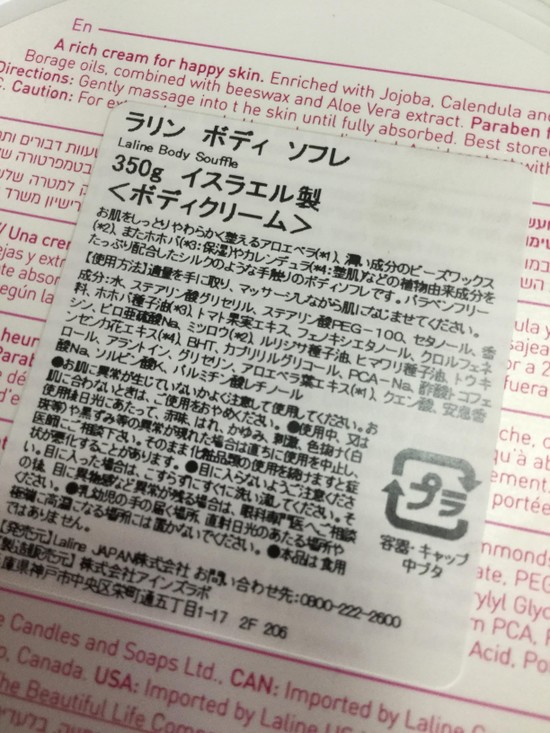 En
A rich cream for happy skin. Enriched with Jojoba, Calendula and
Borage oils, combined with beeswax and Aloe Vera extract. Paraben
Directions: Gently massage into t he skin until fully absorbed. Best store
C. Caution: For
ラリン ボディ ソフレ
Laline Body Souffle
350g イスラエル製
<ボディクリーム>
お肌をしっとりやわらかく整えるアロエベラ(*1)、濃い成分のビーズワックス
(*2)、またホホバ(*3:保湿)やカレンデュラ(*4:整肌)などの植物由来成分を
たっぷり配合したシルクのような手触りのボディソフレです。パラベンフリー
【使用方法】適量を手に取り、マッサージしながら肌になじませてください。
成分:水、ステアリン酸グリセリル、ステアリン酸PEG-100、セタノール、香
料、ホホバ種子油(*3)、トマト果実エキス、フェノキシエタノール、クロルフェネ
シン、ピロ亜硫酸Na、ミツロウ(*2)、ルリジサ種子油、ヒマワリ種子油、トウキ
ンセンカ花エキス(*4)、BHT、カプリリルグリコール、PCA-Na、酢酸トコフェ
ロール、アラントイン、グリセリン、アロエベラ葉エキス(*1)、クエン酸、安息香
酸Na、ソルビン酸K、パルミチン酸レチノール
●お肌に異常が生じていないかよく注意して使用してください。お
肌に合わないときは、ご使用をおやめください。●使用中、又は
使用後日光にあたって、赤味、はれ、かゆみ、刺激、色抜け(白
斑等)や黒ずみ等の異常が現れた場合は直ちに使用を中止し、
医師にご相談下さい。そのまま化粧品類の使用を続けますと症
状が悪化することがあります。●目に入らないようご注意くださ
い。目に入った場合は、こすらずにすぐに洗い流してください。そ
の後、目に異物感など異常が残る場合は、眼科専門医へご相談
ください。●乳幼児の手の届く場所、直射日光のあたる場所や
極端に高温になる場所には置かないでください。●本品は食用
ではありません。
プラ
容器・キャップ
中ブタ
発売元】Laline JAPAN株式会社 お問い合わせ先:0800-222-2600
製造販売元】株式会社アインズラボ
庫県神戸市中央区栄町通五丁目1-17 2F 206
Candles and Soaps Ltd., CAN: Imported by Laline
Canada. USA: Imported by Laline US
The Beautiful Life